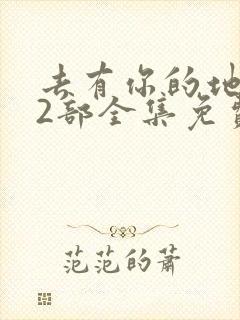 去有你的地
2部全集免费
范范的萧